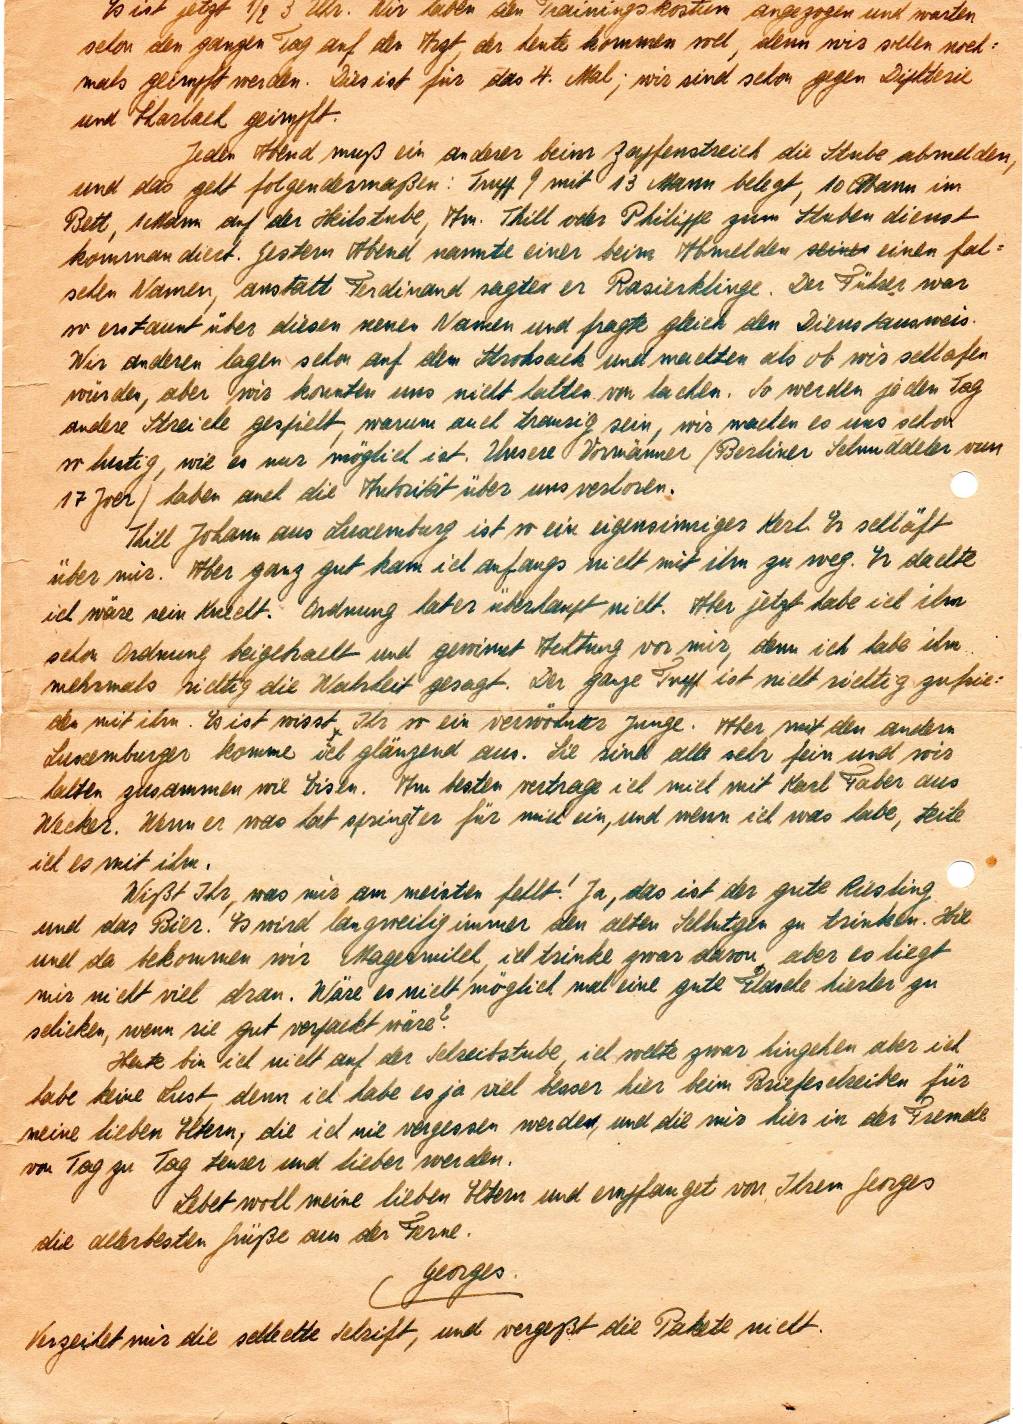 Es ist jetzt 1/2 3 Uhr. Wir haben den Trainingskostüm angezogen und warten
schon den ganzen Tag auf den Arzt, der heute kommen soll, denn wir sollen noch=
mals geimpft werden. Dies ist für das 4. Mal; wir sind schon gegen Diphterie
und Scharlach geimpft.
Jeden Abend muß ein anderer beim Zapfenstreich die Stube abmelden,
und das geht folgendermaßen: Trupp 9 mit 13 Mann belegt, 10 Mann im
Bett, 1 Mann auf der Heilstube, Am. Thill oder Philippe zum Stubendienst
kommandiert. Gestern Abend nannte einer beim Abmelden seinen einen fal=
schen Namen, anstatt Ferdinand sagte er Rasierklinge. Der Führer war
so erstaunt über diesen neuen Namen und fragte gleich den Dienstausweis.
Wir anderen lagen schon auf dem Strohsack und machten als ob wir schlafen
würden, aber wir konnten uns nicht halten von lachen. So werden jeden Tag
andere Streiche gespielt, warum auch traurig sein, wir machen es uns schon
so lustig, wie es nur möglich ist. Unsere Vormänner (Berliner Schnuddeler vum
17 Joer) haben auch die Autorität über uns verloren.
Thill Johann aus Luxemburg ist so ein eigensinniger Kerl. Er schläft
über mir. Aber ganz gut kam ich anfangs nicht mit ihm zu weg. Er dachte
ich wäre sein Knecht. Ordnung hat er überhaupt nicht. Aber jetzt habe ich ihm
schon Ordnung beigebracht und gewinnt Achtung vor mir, denn ich habe ihm
mehrmals richtig die Wahrheit gesagt. Der ganze Trupp ist nicht richtig zufrie=
den mit ihm. Es ist wisst Ihr so ein verwöhnter Junge. Aber mit den andern
Luxemburger komme ich glänzend aus. Sie sind alle sehr fein und wir
halten zusammen wie Eisen. Am besten vertrage ich mich mit Karl Faber aus
Wecker. Wenn er was hat springt er für mich ein, und wenn ich was habe, teile
ich es mit ihm.
Wißt Ihr, was mir am meisten fehlt! Ja, das ist der gute Riesling
und das Bier. Es wird langweilig immer den alten zu trinken. Hie
und da bekommen wir Magermilch, ich trinke zwar davon, aber es liegt
mir nicht viel dran. Wäre es nicht möglich mal eine gute Flasche hierher zu
schicken, wenn sie gut verpackt wäre?
Heute bin ich nicht auf der Schreibstube, ich sollte zwar hingehen aber ich
habe keine Lust, denn ich habe es ja viel besser hier beim Briefeschreiben für
meine lieben Eltern, die ich nie vergessen werden, und die mir hier in der Fremde
von Tag zu Tag teurer und lieber werden.
Lebet wohl meine lieben Eltern und empfanget von Ihrem Georges
die allerbesten Grüße aus der Ferne.
Georges.
Verzeihet mir die schlechte Schrift, und vergeßt die Pakete nicht.